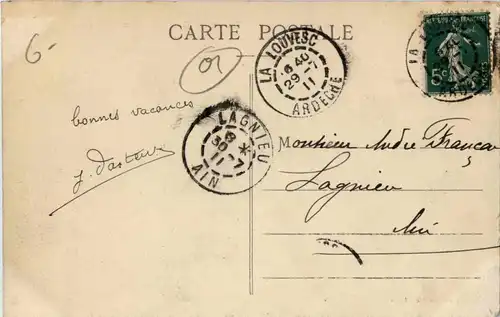 6-
CARTE POSTALE
01
LA LOUVESC
6 40
29 -7
11
ARDÈCHE
LA
5c
bonnes vacances
LAGNIEU
8 *
30 -7
11
AIN
Monsieur André Françon
Lagnieu
Ain